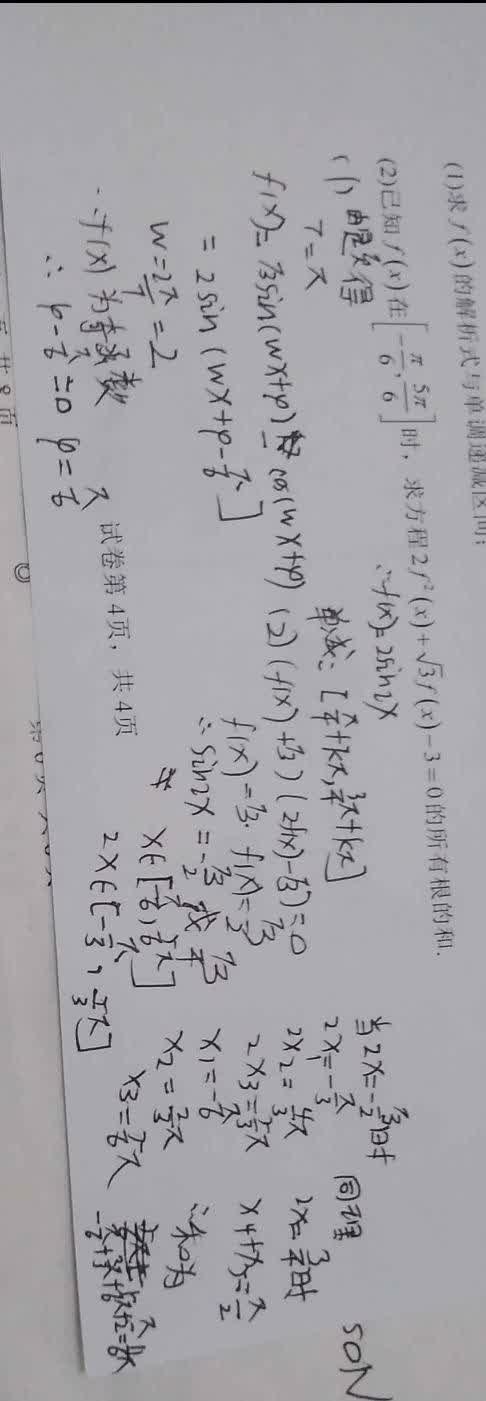 (1)求f(x)的解析式与单调递减区间;
(2)已知f(x)在[-π/6, 5π/6]时，求方程2f²(x)+√3f(x)-3=0的所有根的和.
(1) 由题意得
T=π
f(x)=√3sin(wx+φ)-cos(wx+φ)
=2sin(wx+φ-π/6)
w=2π/T=2
∵f(x)为奇函数
∴φ-π/6=0 φ=π/6
∴f(x)=2sin2x
单减：[π/4+kπ, 3/4π+kπ]
(2) (f(x)+√3)(2f(x)-√3)=0
f(x)=-√3. f(x)=√3/2
∴sin2x=-√3/2或√3/4
x∈[-π/6, 5/6π]
2x∈[-π/3, 5/3π]
当2x=-√3/2时
2x₁=-π/3
2x₂=4/3π
2x₃=5/3π
x₁=-π/6
x₂=2/3π
x₃=5/6π
同理
2x=√3/4时
x₄+x₅=π/2
∴和为
试卷第4页，共4页